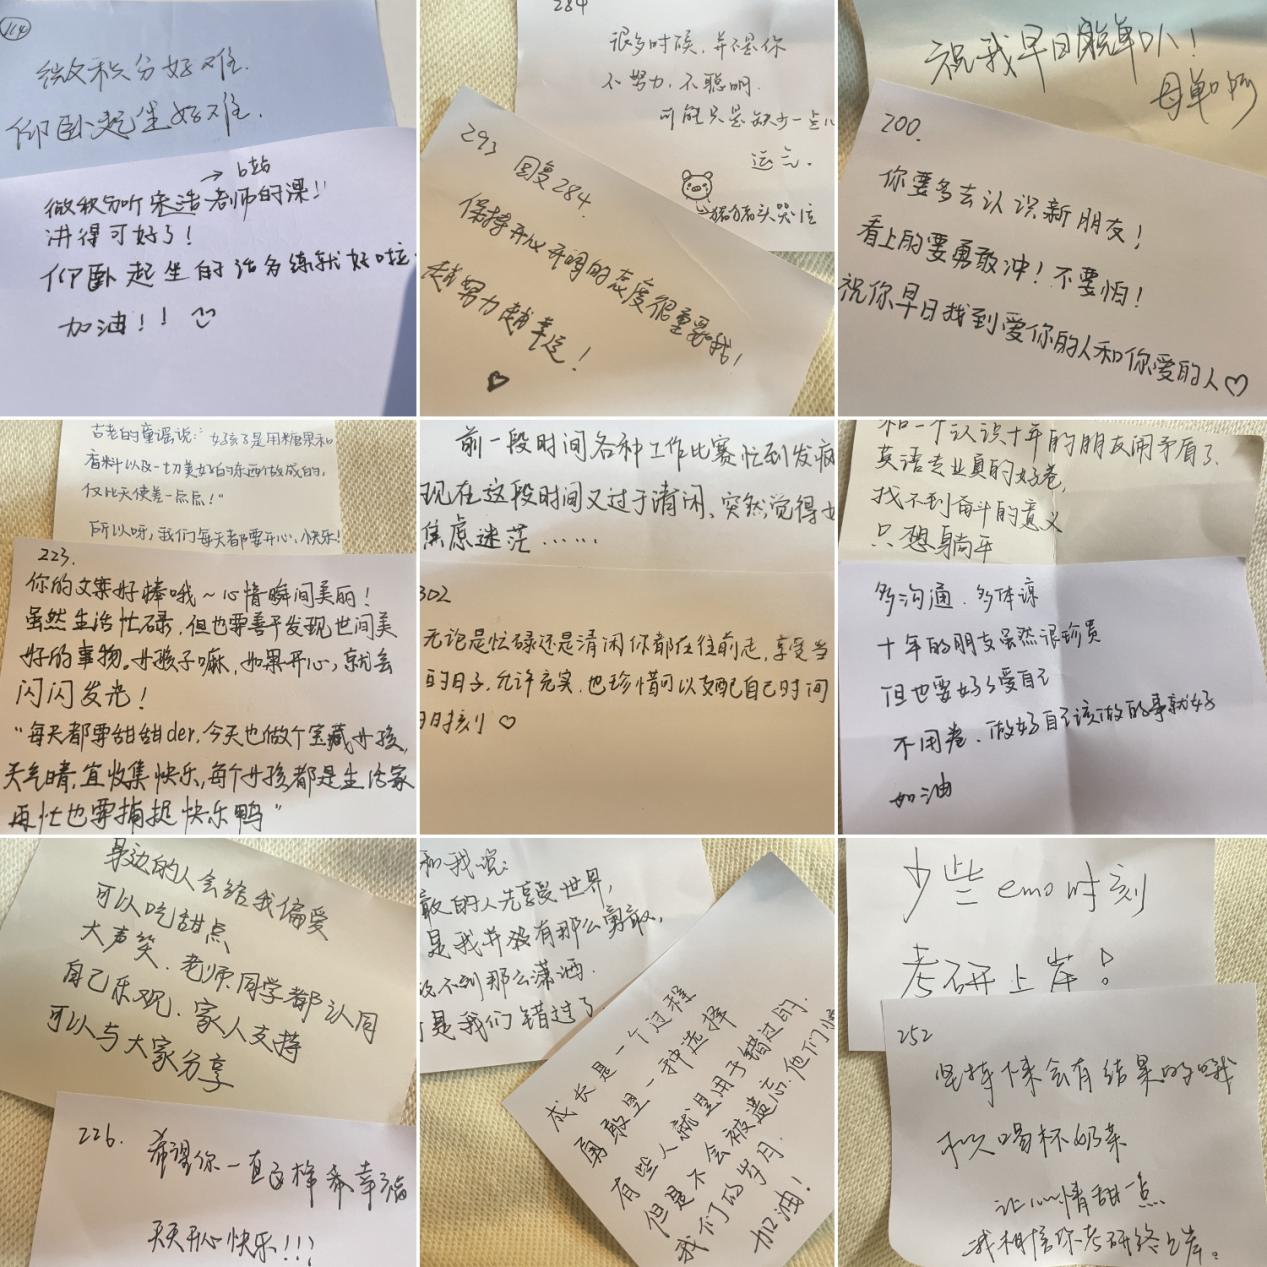 114
微积分好难.
仰卧起坐好难.
→b站
微积分听宋浩老师的课!!
讲得可好了!
仰卧起坐的话多练就好啦
加油!!
284
很多时候,并不是你
不努力,不聪明.
可能只是缺少一点儿
运气.
293 回复284.
保持开心开朗的态度很重要哦!
越努力越幸运!
祝我早日脱单叭!
母单啊
200.
你要多去认识新朋友!
看上的要勇敢冲!不要怕!
祝你早日找到爱你的人和你爱的人♡
古老的童谣说:“好孩子是用糖果和
香料以及一切美好的东西做成的,
仅比天使差一点点!”
所以呀,我们每天都要开心、快乐!
223.
你的文案好棒哦~心情瞬间美丽!
虽然生活忙碌,但也要善于发现世间美
好的事物。女孩子嘛,如果开心,就会
闪闪发光!
“每天都要甜甜der,今天也做个宝藏女孩,
天气晴,宜收集快乐,每个女孩都是生活家
再忙也要捕捉快乐鸭”
前一段时间各种工作比赛忙到发疯
现在这段时间又过于清闲、突然觉得
焦虑迷茫……
302
无论是忙碌还是清闲你都在往前走,享受当
的日子,允许充实,也珍惜可以支配自己时间
时刻♡
和一个认识十年的朋友闹矛盾了.
英语专业真的好卷,
找不到奋斗的意义
只想躺平
多沟通、多体谅
十年的朋友虽然很珍贵
但也要好好爱自己
不用卷、做好自己该做的事就好
加油
身边的人会给我偏爱
可以吃甜点
大声笑、老师同学都认同
自己乐观、家人支持
可以与大家分享
226. 希望你一直这样幸福
天天开心快乐!!!
和我说:
敢的人先享受世界,
是我并没有那么勇敢,
不到那么潇洒.
是我们错过了
成长是一个过程
勇敢是一种选择
有些人就是用于错过的.
但是不会被遗忘.他们
我们的岁月.
加油!
少些emo时刻
考研上岸!
252
坚持下来会有结果的哦
喝杯奶茶
让心情甜一点
我相信你考研终上岸。